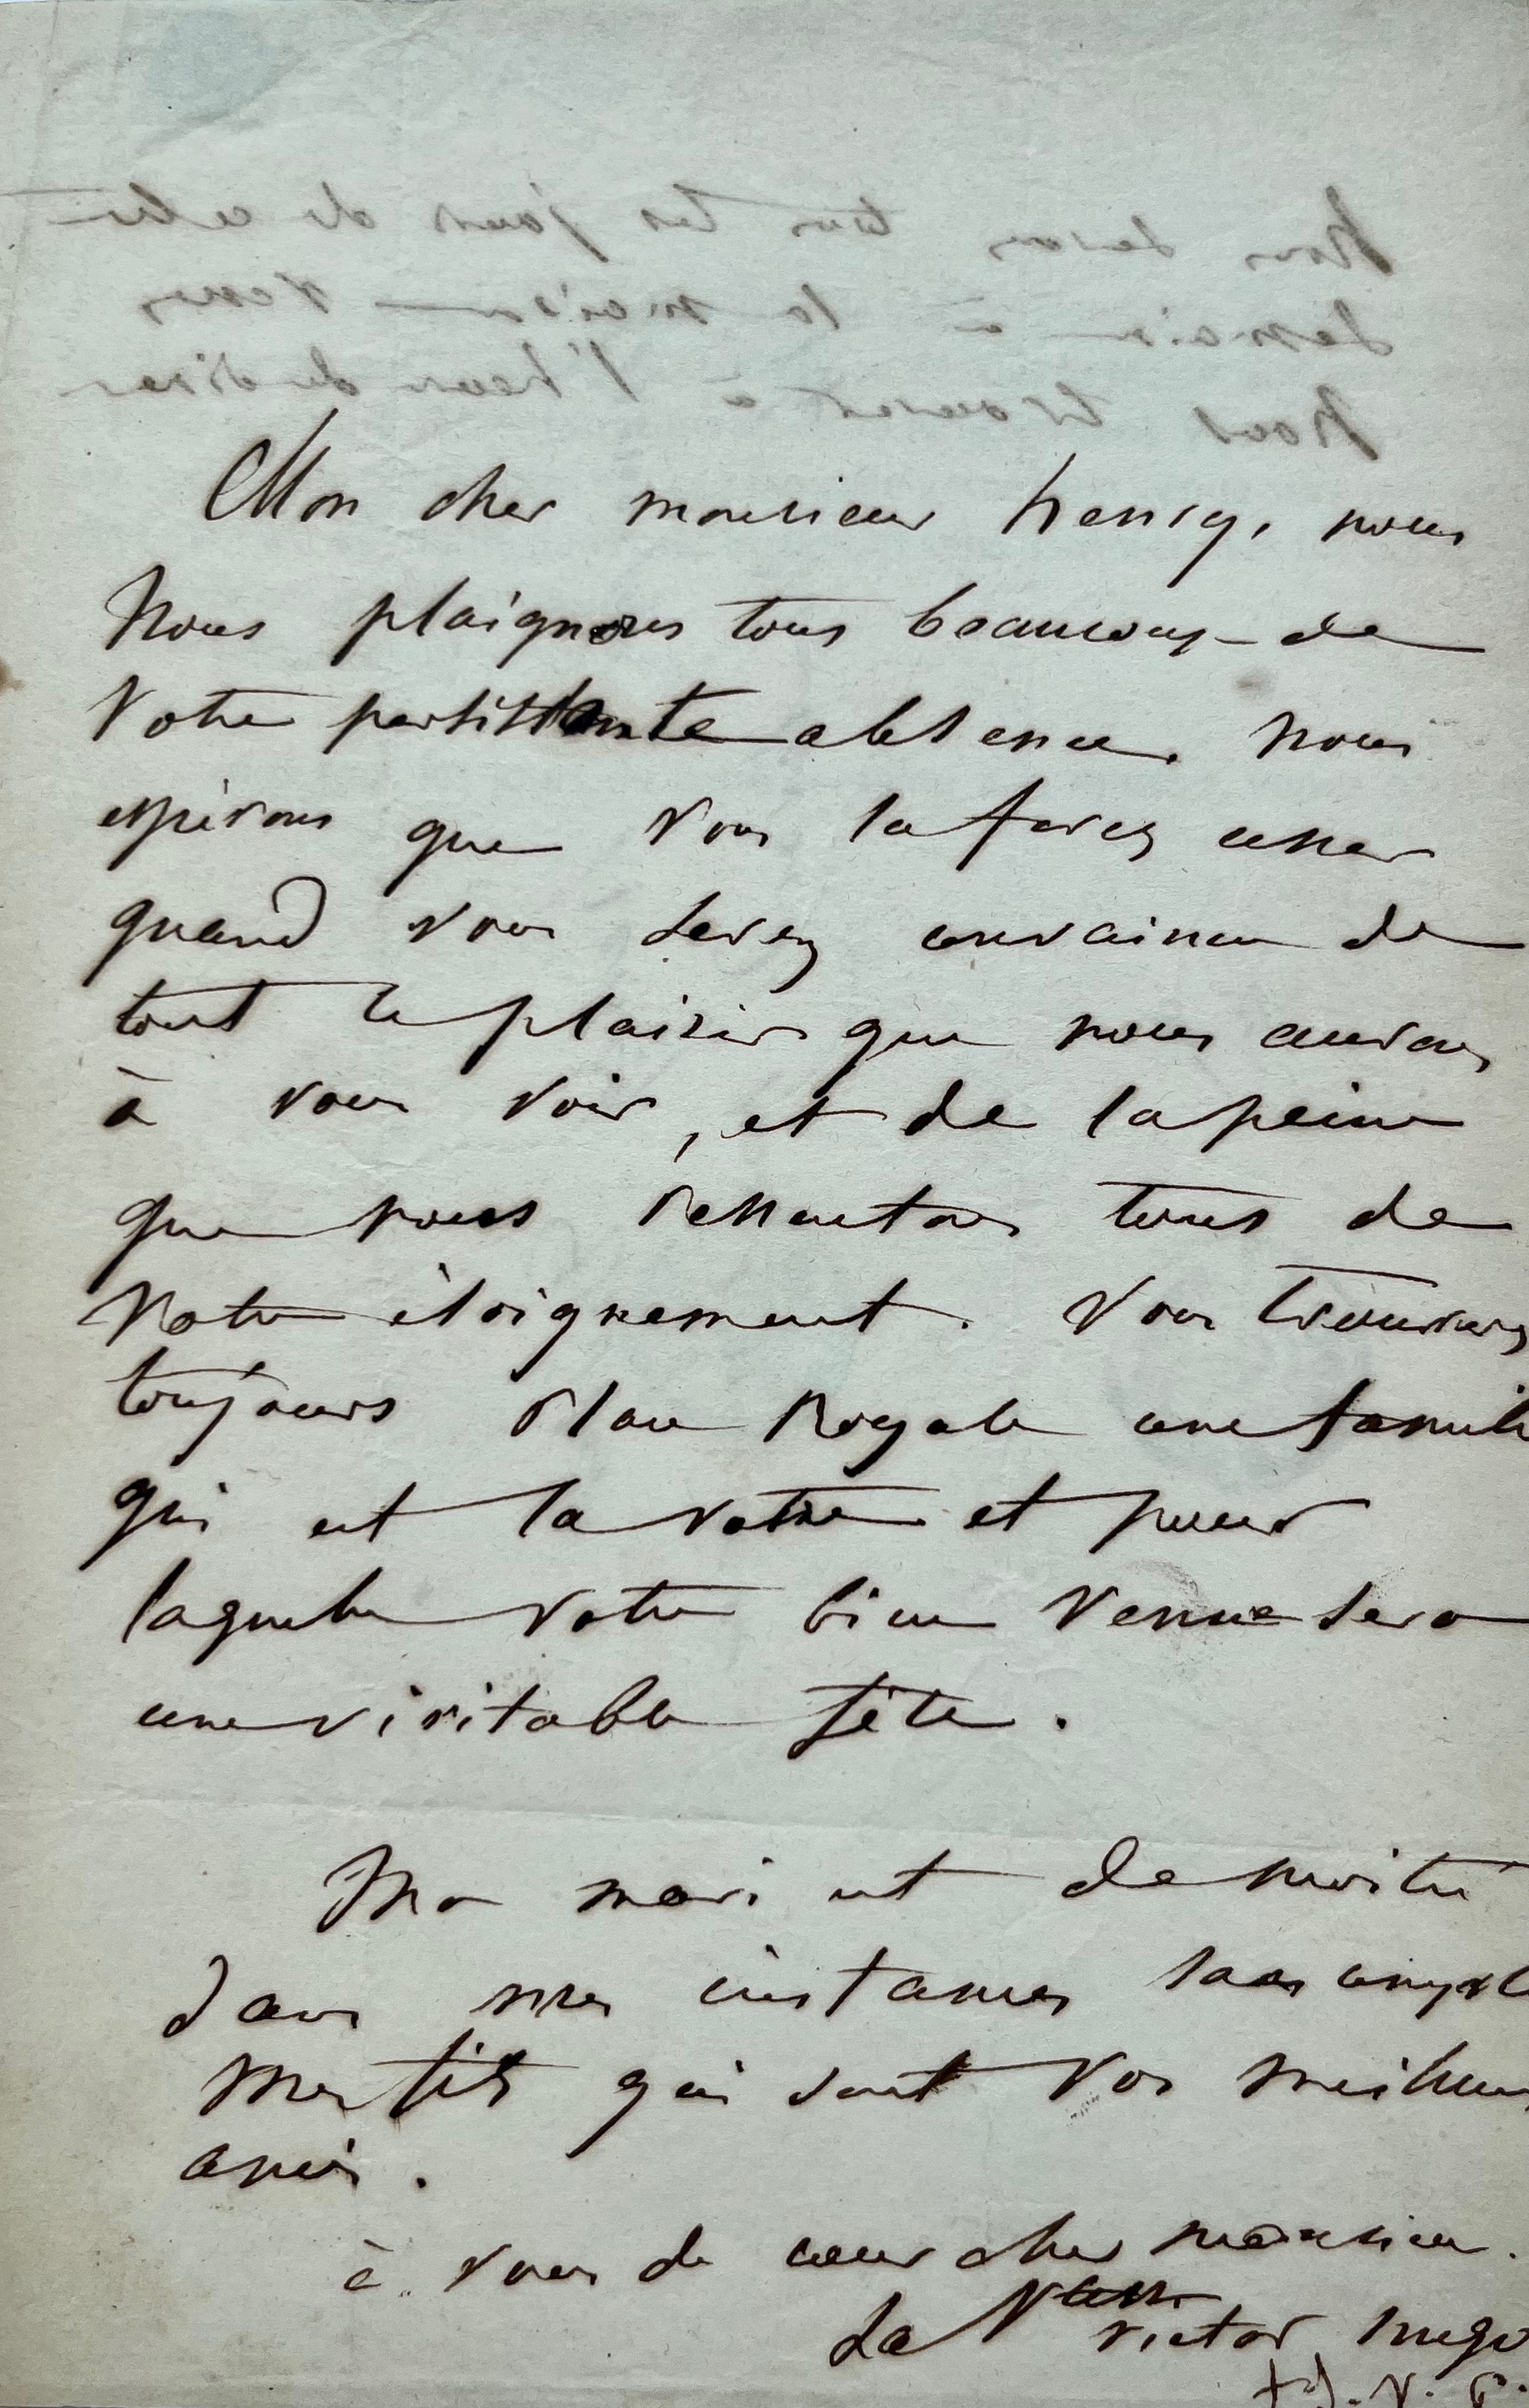 Mon cher monsieur henry, nous
nous plaignons tous beaucoup de
votre persistante absence. nous
espérons que vous la ferez cesser
quand vous serez convaincu de
tout le plaisir que nous aurons
à vous voir, et de la peine
que nous ressentons tous de
votre éloignement. vous trouverez
toujours place Royale une famille
qui est la votre et pour
laquelle votre bien venue sera
une véritable fête.
Mon mari est de moitié
dans mes instances sans compter
mes fils qui sont vos meilleurs
amis.
à vous de coeur cher monsieur.
La Vtesse
victor hugo
t. s. v. p.
Nous serons tous les jours de cette
semaine à la maison venez
nous trouver à l'heure du diner